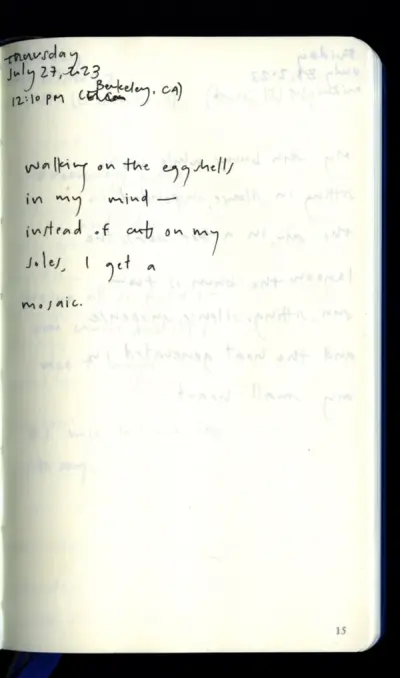 Thursday
July 27, 2023
12:10 PM (Berkeley, CA)
walking on the eggshells
in my mind —
instead of cuts on my
soles, I get a
mosaic.
15